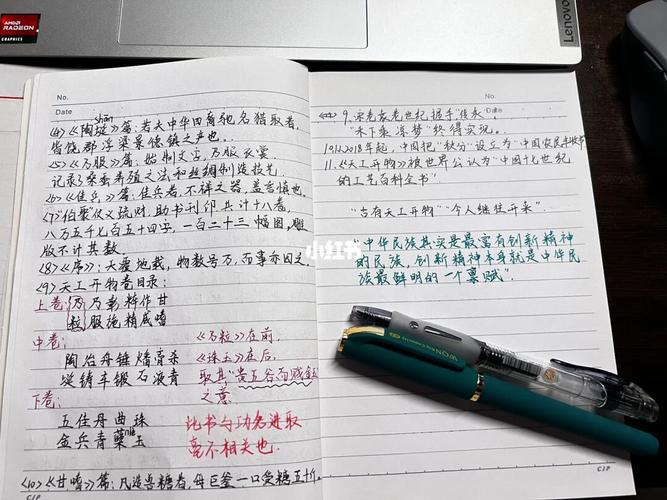 AMD
RADEON
GRAPHICS
Lenovo
No.
Date
<4>《陶埏》篇:若夫中华四裔驰名猎取者,
shān
皆饶郡浮梁景德镇之产也.
<5>《乃服》篇:
记录了桑蚕养殖之法和丝绸制造技艺.
<6>《佳兵》篇:佳兵者,不祥之器,盖言慎也.
<7>伯聚仗义疏财,助书刊印共计十八卷,
八万五千七百五十四字,一百二十三幅图,雕
版不计其数.
<8>《序》:天覆地载,物数号万,而事亦因之.
<9>天工开物卷目录:
上卷:乃乃彰粹作甘
粒服施精咸嗜
中卷:
陶冶舟锤燔膏杀
埏铸车锻石液青
下卷:
五佳丹曲珠
金兵青糵玉
niè
《乃粒》在前,
《珠玉》在后,
取其"贵五谷而贱金玉
之意
此书与功名进取
毫不相关也.
<10>《甘嗜》篇:凡造兽糖者,每巨釜一口受糖五十斤.
CIP
No.
Date
9.宋老袁老世纪握手,
"禾下乘凉梦"终得实现.
10.2018年起,中国把"秋分"设立为"中国农民丰收节
11.《天工开物》被世界公认为"中国十七世纪
的工艺百科全书"
"古有天工开物" "今人继往开来".
"中华民族其实是最富有创新精神
的民族,创新精神本身就是中华民
族最鲜明的一个禀赋"
小红书
WON
CIP